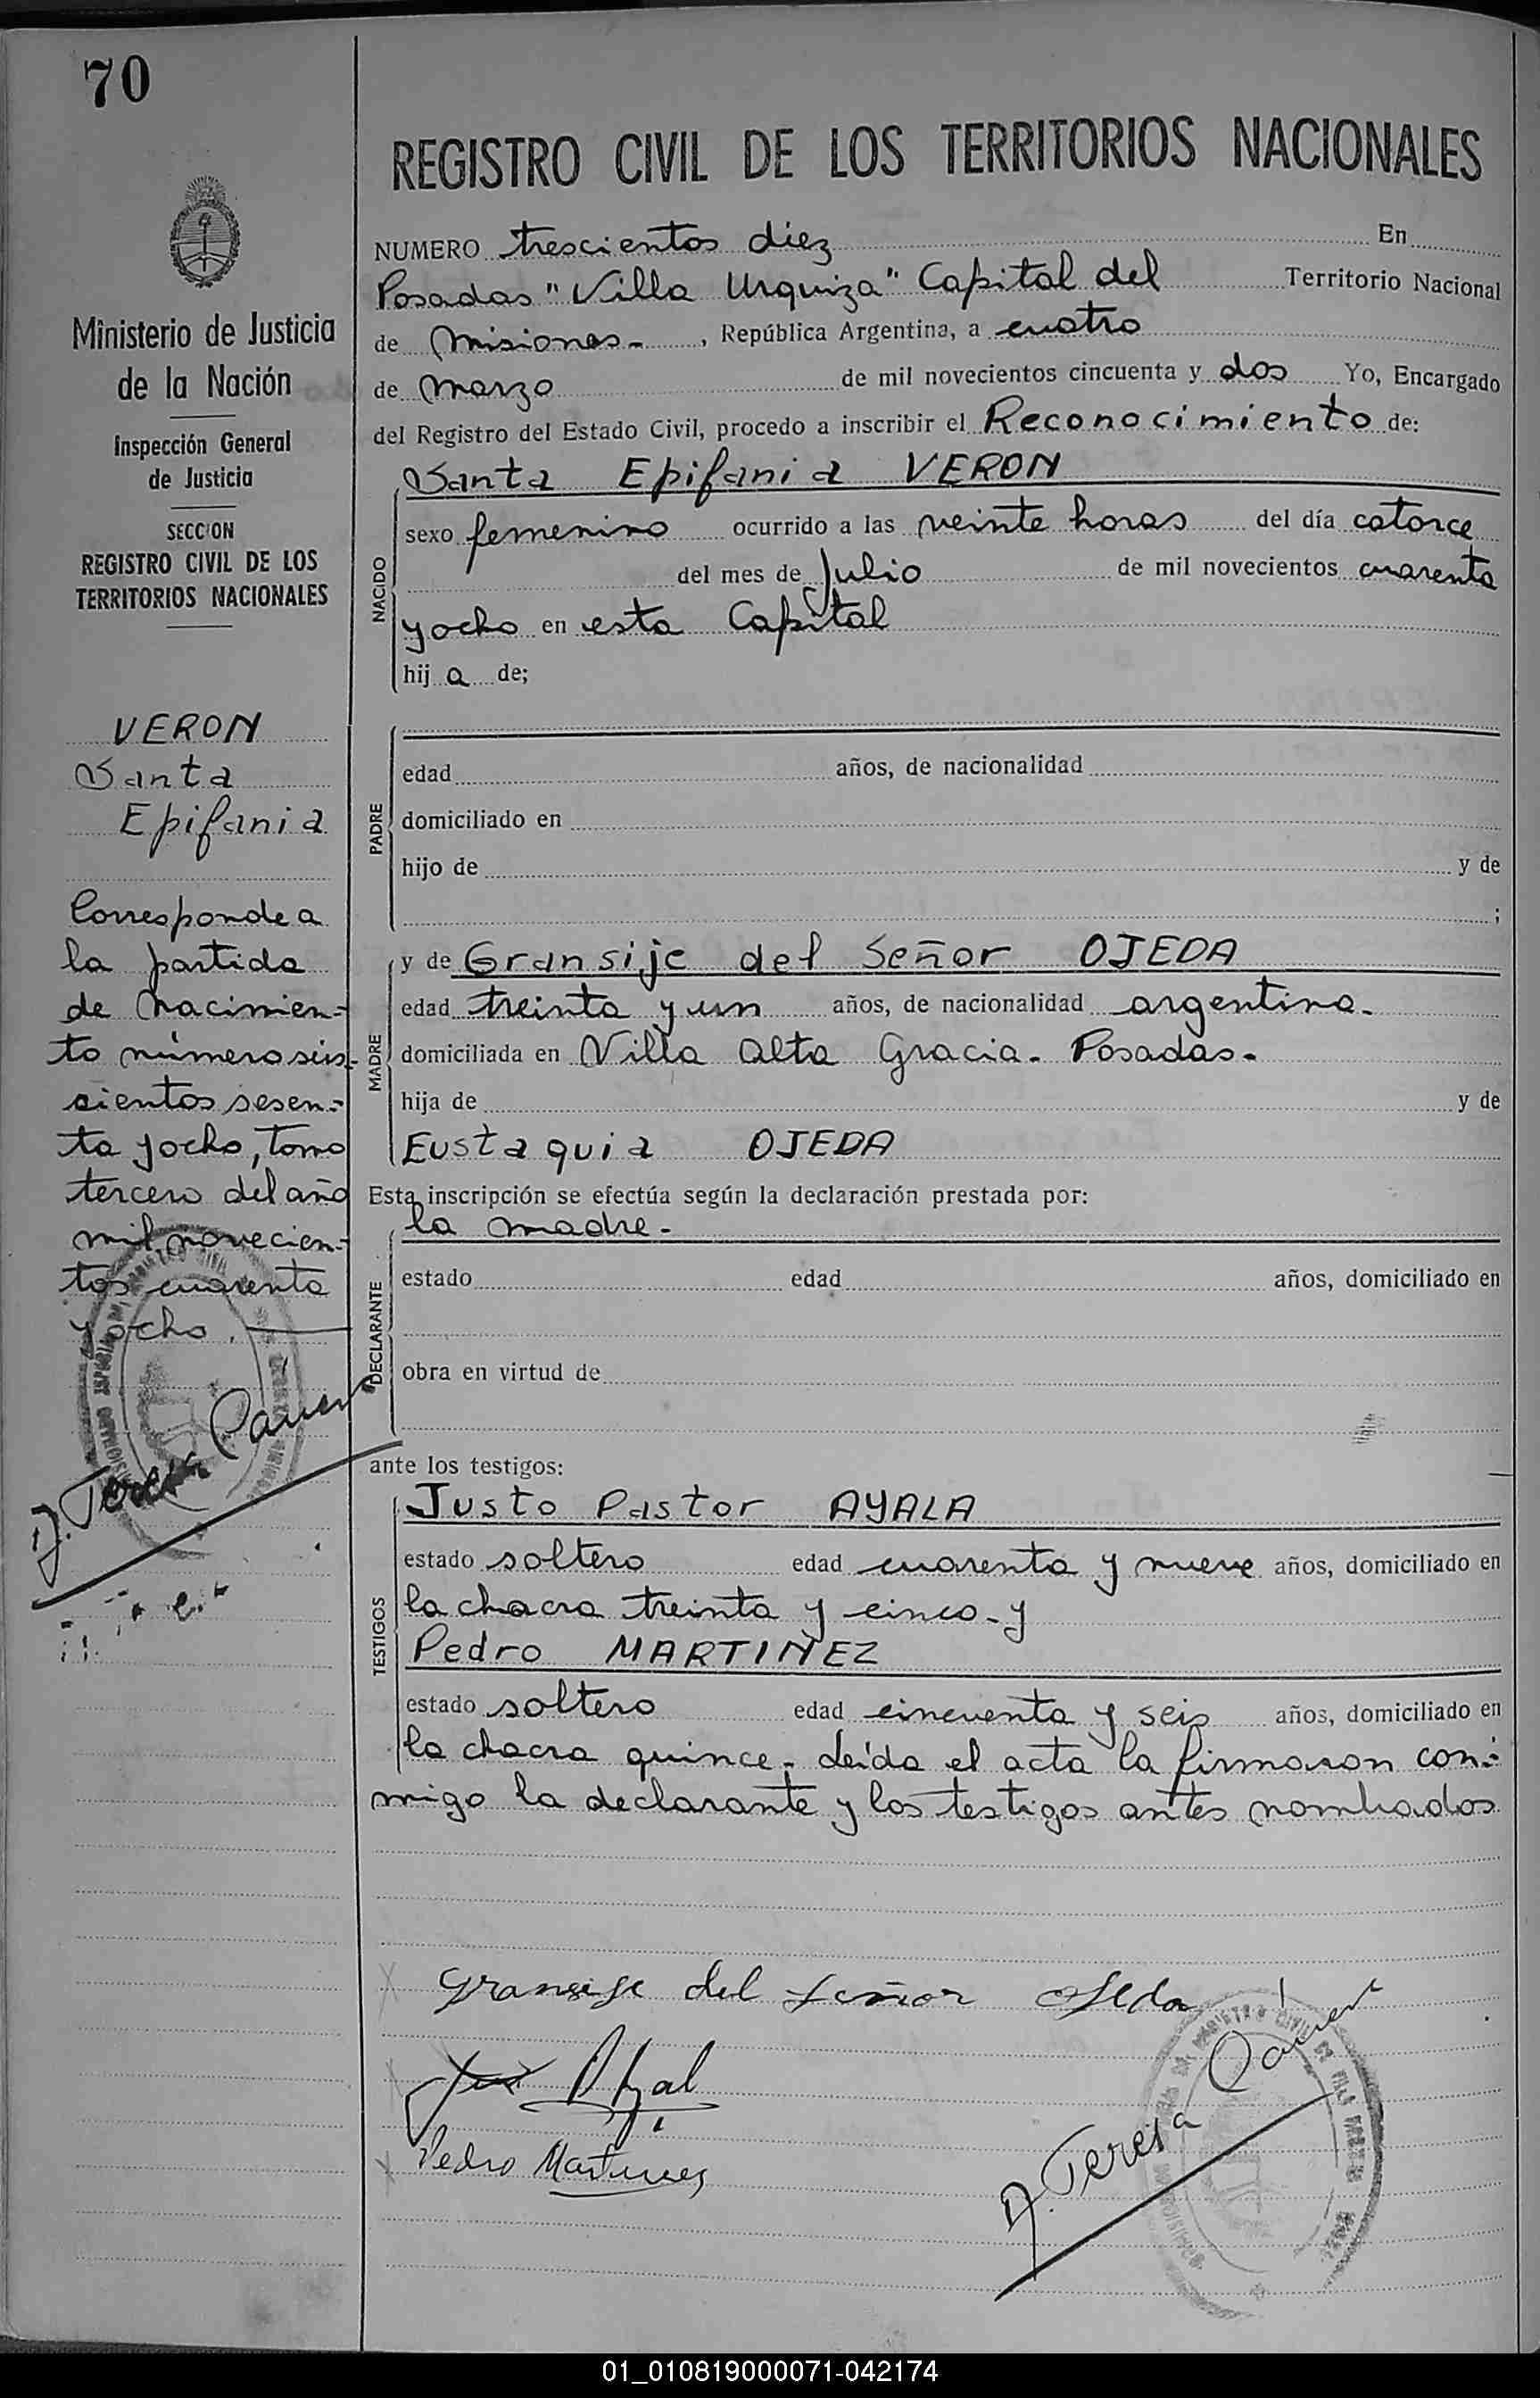 70
REGISTRO CIVIL DE LOS TERRITORIOS NACIONALES
Ministerio de Justicia
de la Nación
Inspección General
de Justicia
SECCION
REGISTRO CIVIL DE LOS
TERRITORIOS NACIONALES
VERON
Santa
Epifania
Corresponde a
la partida
de nacimien-
to número seis-
cientos sesen-
ta y ocho, tomo
tercero del año
mil novecien-
tos cuarenta
y ocho.
D. Teresa
NUMERO trescientos diez En
Posadas "Villa Urquiza" Capital del Territorio Nacional
de Misiones-, República Argentina, a cuatro
de Marzo de mil novecientos cincuenta y dos Yo, Encargado
del Registro del Estado Civil, procedo a inscribir el Reconocimiento de:
Santa Epifania VERON
NACIDO
sexo femenino ocurrido a las veinte horas del día catorce
del mes de Julio de mil novecientos cuarenta
y ocho en esta Capital
hij a de;
PADRE
edad años, de nacionalidad
domiciliado en
hijo de y de
;
MADRE
y de Gransije del Señor OJEDA
edad treinta y un años, de nacionalidad argentina.
domiciliada en Villa Alta Gracia. Posadas.
hija de y de
Eustaquia OJEDA
Esta inscripción se efectúa según la declaración prestada por:
la madre-
DECLARANTE
estado edad años, domiciliado en
obra en virtud de
ante los testigos:
TESTIGOS
Justo Pastor AYALA
estado soltero edad cuarenta y nueve años, domiciliado en
la chacra treinta y cinco- y
Pedro MARTINEZ
estado soltero edad cincuenta y seis años, domiciliado en
la chacra quince- Leída el acta la firmaron con-
migo la declarante y los testigos antes nombrados
Gransije del Señor Ojeda
Pedro Martinez
D. Teresa
01_010819000071-042174